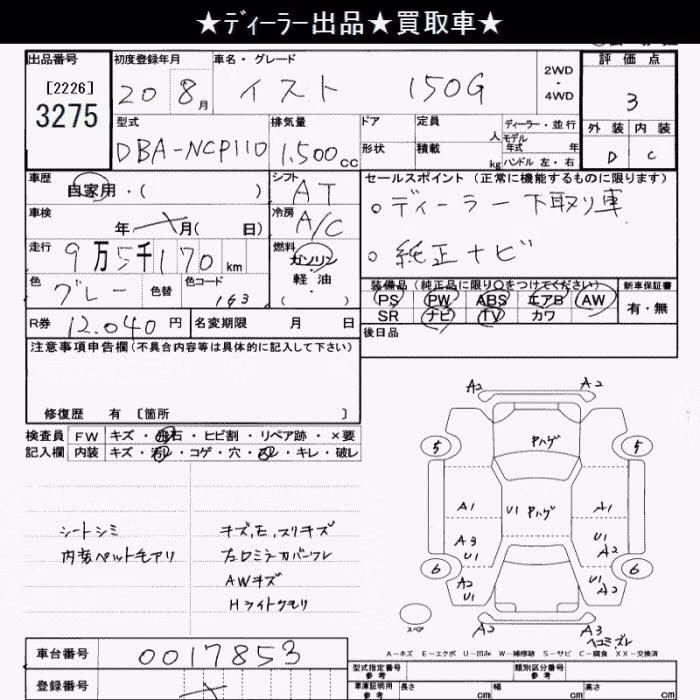 ★ディーラー出品★買取車★
出品番号 初度登録年月 車名・グレード 2WD・4WD 評価点
[2226]
3275
20 8月 イスト 150G 3
型式 排気量 ドア 定員 人 ディーラー・並行 外装 内装
DBA-NCP110 1,500cc 形状 積載 kg モデル年式 年 ハンドル 左・右 D C
車歴 自家用・( ) シフト AT セールスポイント (正常に機能するものに限ります)
車検 年 月( 日) 冷房 A/C ○ディーラー下取り車
走行 9万5千170km 燃料 ガソリン ○純正ナビ
色 グレー 色替 色コード 1G3 軽油・( )
装備品 (純正品に限り○をつけてください) 新車保証書
PS PW ABS エアB AW 有・無
SR ナビ TV カワ
R券 12,040円 名変期限 月 日 後日品
注意事項申告欄(不具合内容等は具体的に記入して下さい)
修復歴 有 〔箇所 〕
検査員 FW キズ・飛石・ヒビ割・リペア跡・×要
記入欄 内装 キズ・汚レ・コゲ・穴・スレ・キレ・破レ
シートシミ
内装ペット毛アリ
キズ,E,スリキズ
左ロミラカバーワレ
AWキズ
Hライトクモリ
A2 A2
5 Pハゲ 5
A1 U1 Pハゲ A1
A3 U1 U1 A2
6 6
A2 U1 U1 A2
スペア A2 A3
ヘコミズレ
A-キズ E-エクボ U-凹み W-補修跡 S-サビ C-腐食 XX-交換済
車台番号 0017853 型式指定番号 参考 類別区分番号 参考
登録番号 車庫証明用 参考 長さ cm 幅 cm 高さ cm